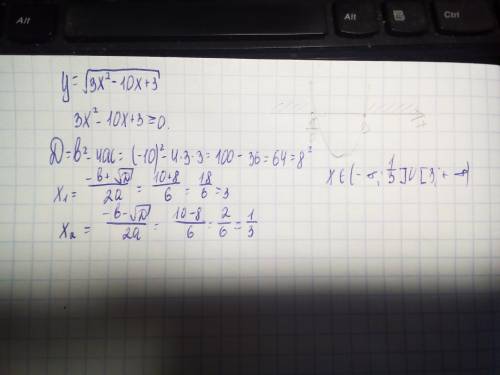 Alt
Alt
Ctrl
y = √(3x² - 10x + 3)
3x² - 10x + 3 ≥ 0.
D = b² - 4ac = (-10)² - 4·3·3 = 100 - 36 = 64 = 8²
x₁ = (-b + √D)/2a = (10+8)/6 = 18/6 = 3
x₂ = (-b - √D)/2a = (10-8)/6 = 2/6 = 1/3
x ∈ (-∞; 1/3] ∪ [3; +∞)